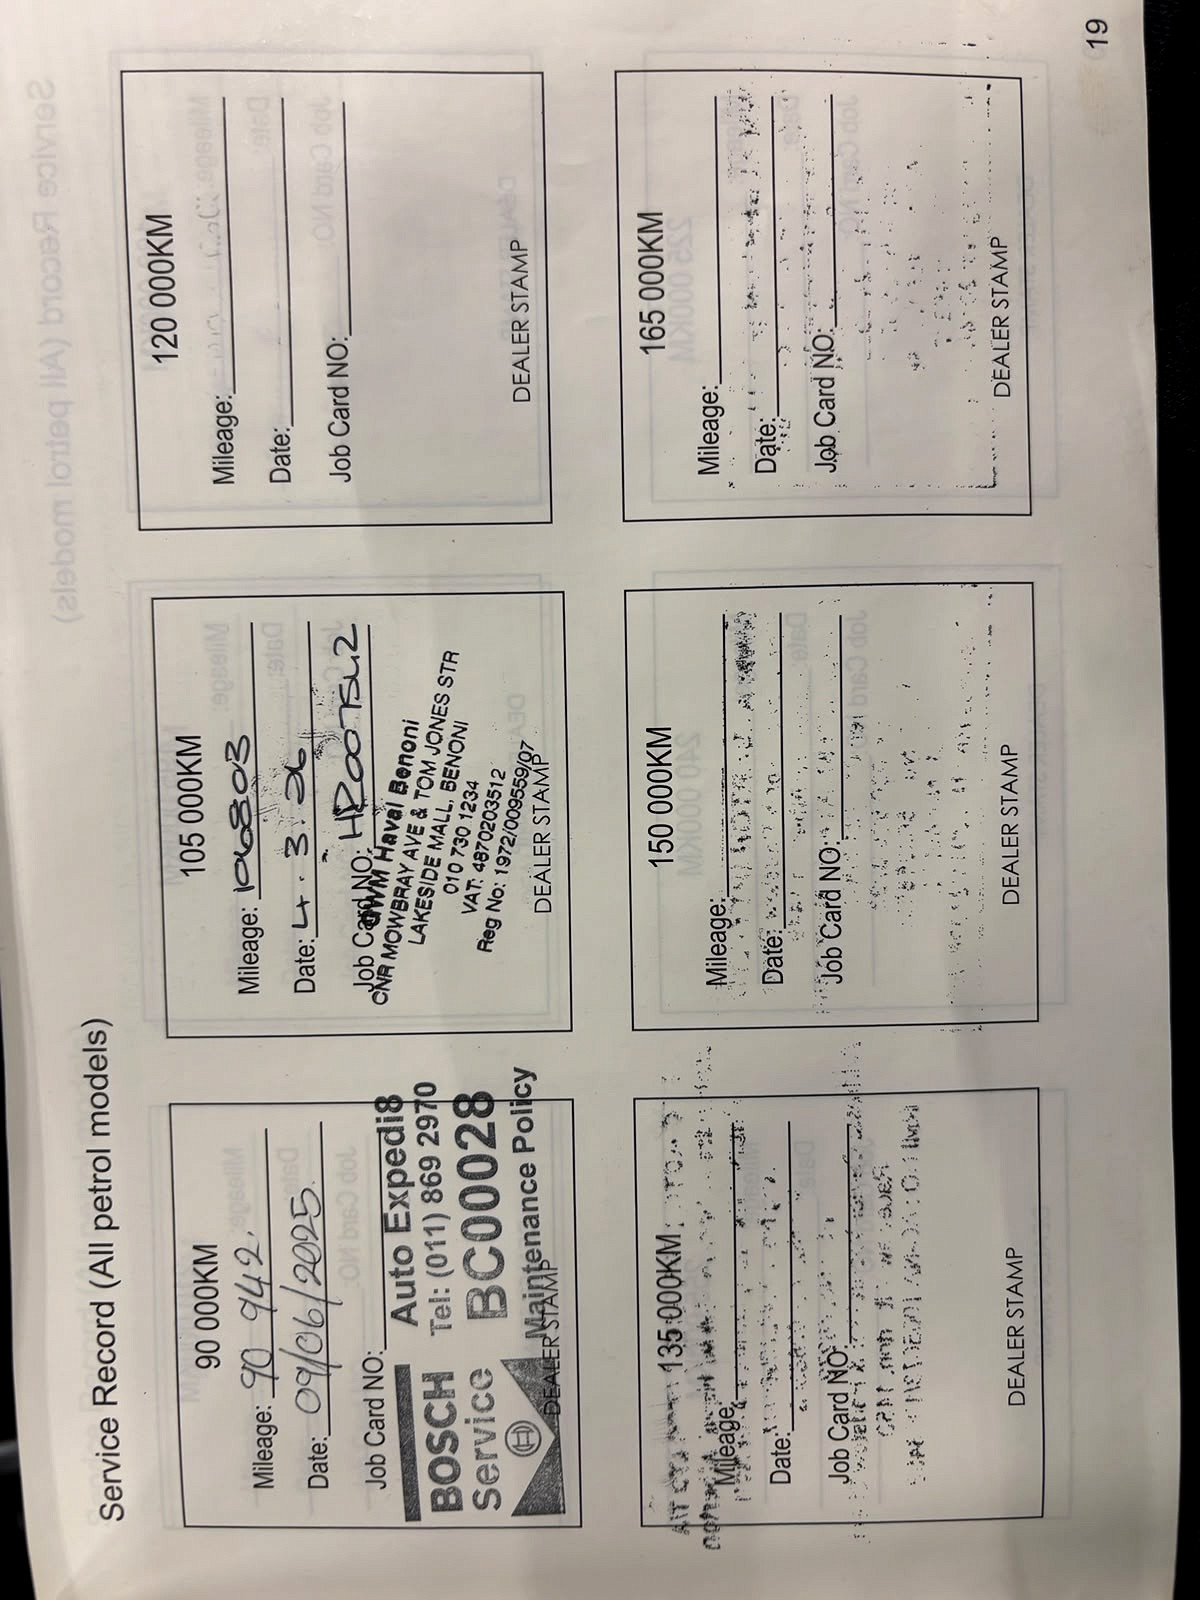 Service Record (All petrol models)
90 000KM
Mileage: 90 942.
Date: 09/06/2025.
Job Card NO:
BOSCH
Service
Auto Expedi8
Tel: (011) 869 2970
BC00028
Maintenance Policy
DEALER STAMP
105 000KM
Mileage: 106803
Date: 4.3.26
Job Card NO:
GWM Haval Benoni
CNR MOWBRAY AVE & TOM JONES STR
LAKESIDE MALL, BENONI
010 730 1234
VAT: 4870203512
Reg No: 1972/009559/07
DEALER STAMP
120 000KM
Mileage:
Date:
Job Card NO:
DEALER STAMP
135 000KM
Mileage:
Date:
Job Card NO:
DEALER STAMP
150 000KM
Mileage:
Date:
Job Card NO:
DEALER STAMP
165 000KM
Mileage:
Date:
Job Card NO:
DEALER STAMP
19